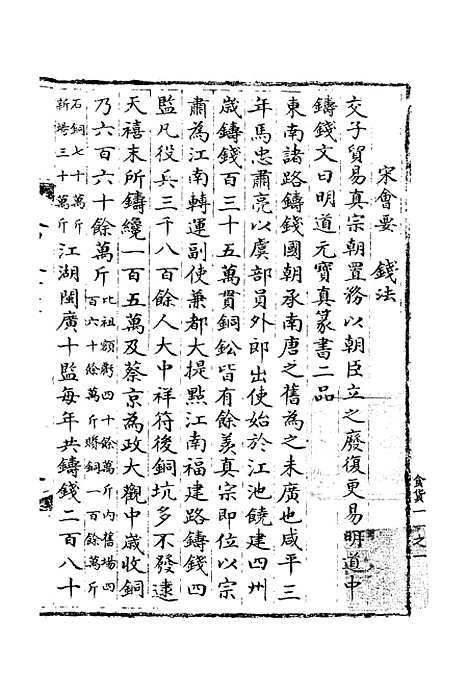 宋會要　錢法
交子貿易真宗朝置務以朝臣立之廢復更易明道中
鑄錢文曰明道元寶真篆書二品
東南諸路鑄錢國朝承南唐之舊為之未廣也咸平三
年馬忠肅亮以虞部員外郎出使始於江池饒建四州
歲鑄錢百三十五萬貫銅鈆皆有餘羨真宗即位以宗
肅為江南轉運副使兼都大提點江南福建路鑄錢四
監凡役兵三千八百餘人大中祥符後銅坑多不發逮
天禧末所鑄纔一百五萬及蔡京為政大觀中歲收銅
乃六百六十餘萬斤比祖額虧四十餘萬斤內舊場四百六十餘萬斤膽銅一百餘萬斤
石銅七十萬斤新塔三十萬斤江湖閩廣十監每年共鑄錢二百八十
食貨一之一